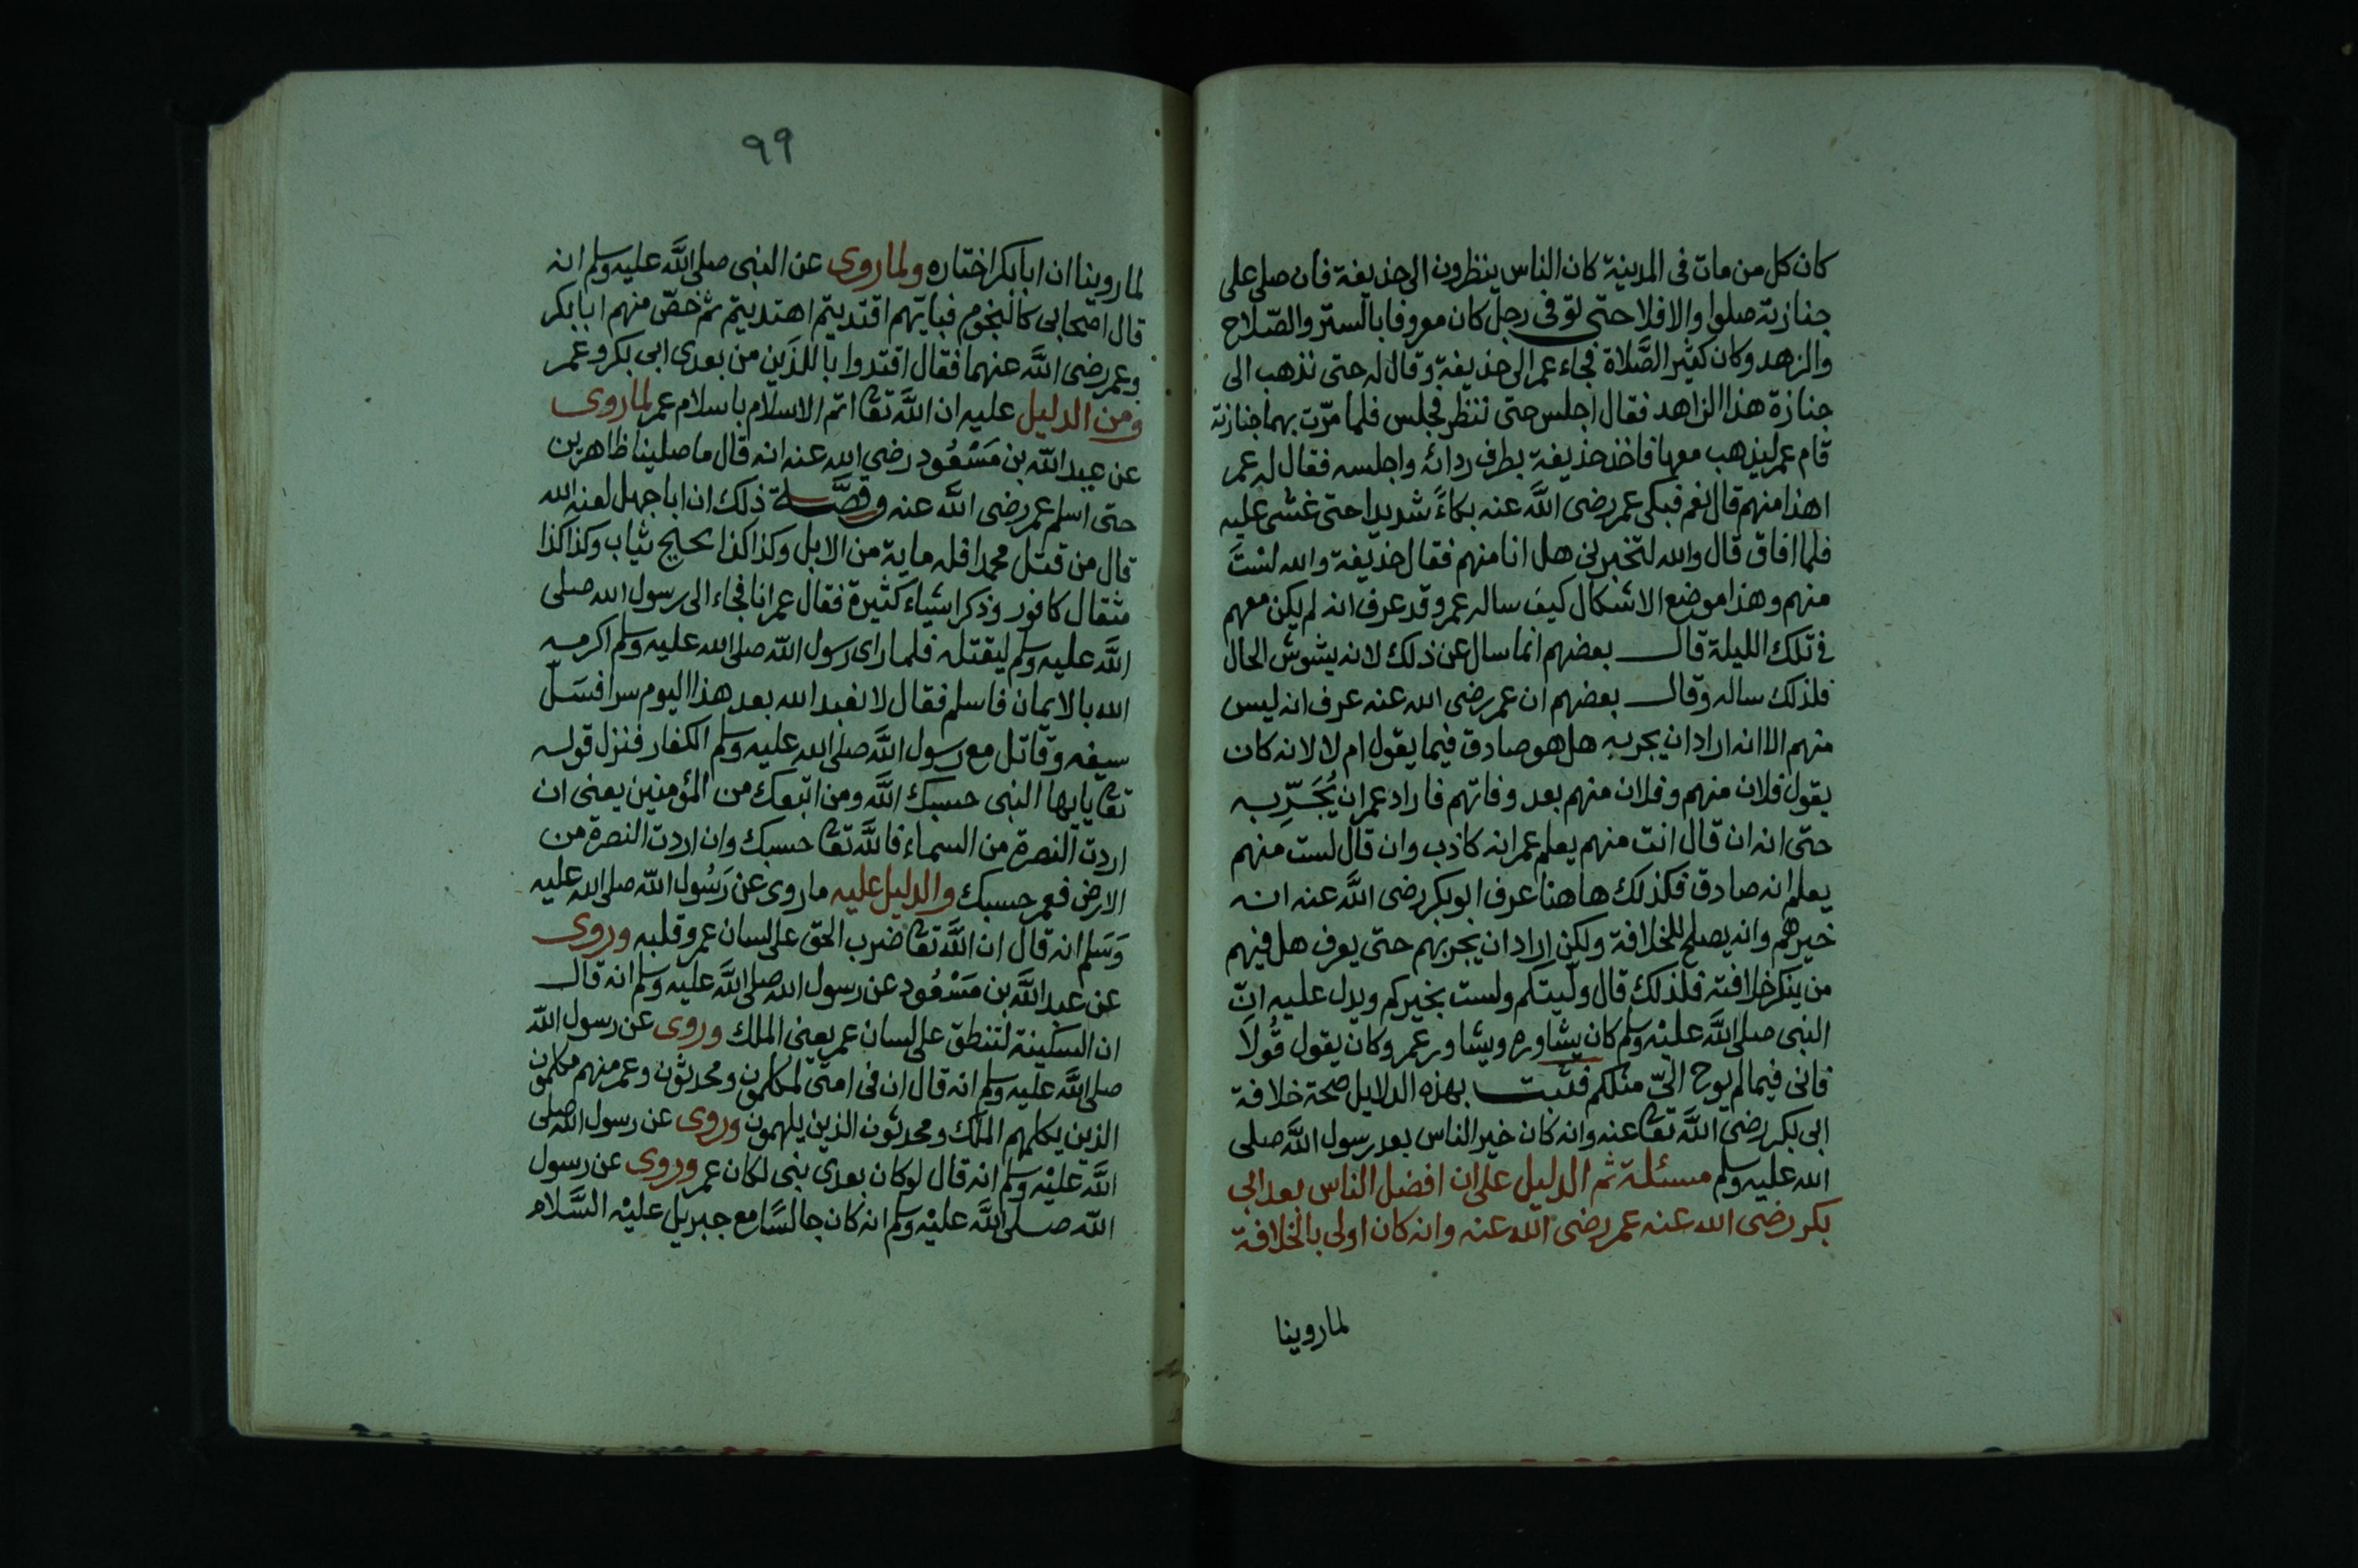 كان كل من مات فى المدينة كان الناس ينظرون الى حذيفة فان صلى على
جنازته صلوا والا فلا حتى توفى رجل كان معروفا بالستر والصّلاح
والزهد وكان كثير الصَّلاة فجاء عمر الى حذيفة وقال له حتى نذهب الى
جنازة هذا الزاهد فقال اجلس حتى ننظر فجلس فلما مرّت بهما جنازته
قام عمر ليذهب معها فاخذ حذيفة بطرف ردائه واجلسه فقال له عمر
اهذا منهم قال نعم فبكى عمر رضى اللَّه عنه بكاءً شديدا حتى غشى عليه
فلما افاق قال والله لتخبرنى هل انا منهم فقال حذيفة والله لستَ
منهم وهذا موضع الاشكال كيف ساله عمر وقد عرف انه لم يكن معهم
فى تلك الليلة قال بعضهم انما سال عن ذلك لانه يشوش الحال
فلذلك ساله وقال بعضهم ان عمر رضى الله عنه عرف انه ليس
منهم الا انه اراد ان يجربه هل هو صادق فيما يقول ام لا لانه كان
يقول فلان منهم وفلان منهم بعد وفاتهم فاراد عمر ان يُجَرِّبه
حتى انه ان قال انت منهم يعلم عمر انه كاذب وان قال لست منهم
يعلم انه صادق فكذلك هاهنا عرف ابو بكر رضى اللَّه عنه انه
خيرهم وانه يصلح للخلافة ولكن اراد ان يجربهم حتى يعرف هل فيهم
من ينكر خلافته فلذلك قال وليتكم ولست بخيركم ويدل عليه انّ
النبى صلى اللَّه عليْه وسلم كان يشاوره ويشاور عمر وكان يقول قُولَا
فانى فيما لم يوح الىّ مثلكم فثبت بهذه الدلايل صحة خلافة
ابى بكر رضى اللَّه تعا عنه وانه كان خير الناس بعد رسول اللَّه صلى
الله عليه وسلم مسئلة ثم الدليل على ان افضل الناس بعد ابى
بكر رضى الله عنه عمر رضى الله عنه وانه كان اولى بالخلافة
لما روينا
٩٩
لما روينا ان ابا بكر اختاره ولما روى عن النبى صلى اللَّه عليه وسلم انه
قال اصحابى كالنجوم فبايّهم اقتديتم اهتديتم ثم خصّ منهم ابا بكر
وعمر رضى اللَّه عنهما فقال اقتدوا باللذَين من بعدى ابى بكر وعمر
ومن الدليل عليه ان اللَّه تعا اتم الاسلام باسلام عمر لما روى
عن عبد اللَّه بن مَسْعُود رضى الله عنه انه قال ما صلينا ظاهرين
حتى اسلم عمر رضى اللَّه عنه وقصَّة ذلك ان ابا جهل لعنه الله
قال من قتل محمدا فله ماية من الابل وكذا كذا ثياب وكذا كذا
مثقال كافور وذكر اشياء كثيرة فقال عمر انا فجاء الى رسول الله صلى
اللَّه عليه وسلم ليقتله فلما راى رسول اللَّه صلى الله عليه وسلم اكرمه
الله بالايمان فاسلم فقال لا نعبد الله بعد هذا اليوم سرا فسَلّ
سيفه وقاتل مع رسول اللَّه صلى الله عليه وسلم الكفار فنزل قوله
تعا يايها النبى حسبك اللَّه ومن اتبعك من المؤمنين يعنى ان
اردت النصرة من السماء فاللَّه تعا حسبك وان اردت النصرة من
الارض فعمر حسبك والدليل عليه ما روى عن رَسُول اللّه صلى الله عليه
وَسَلم انه قال ان اللَّه تعا ضرب الحق على لسان عمر وقلبه وروى
عن عبد اللَّه بن مَسْعُود عن رسول الله صلى اللَّه عليه وسلم انه قال
ان السكينة لتنطق على لسان عمر يعنى الملك وروى عن رسول اللَّه
صلى اللَّه عليه وسلم انه قال ان فى امتى لمكلمون ومحدثون وعمر منهم مكلمون
الذين يكلمهم الملك ومحدثون الذين يلهمون وروى عن رسول اللَّه صلى
اللَّه عليْه وسلم انه قال لو كان بعدى نبى لكان عمر وروى عن رسول
اللّه صلى اللَّه عليْه وسلم انه كان جالسًا مع جبريل عليْه السَّلام